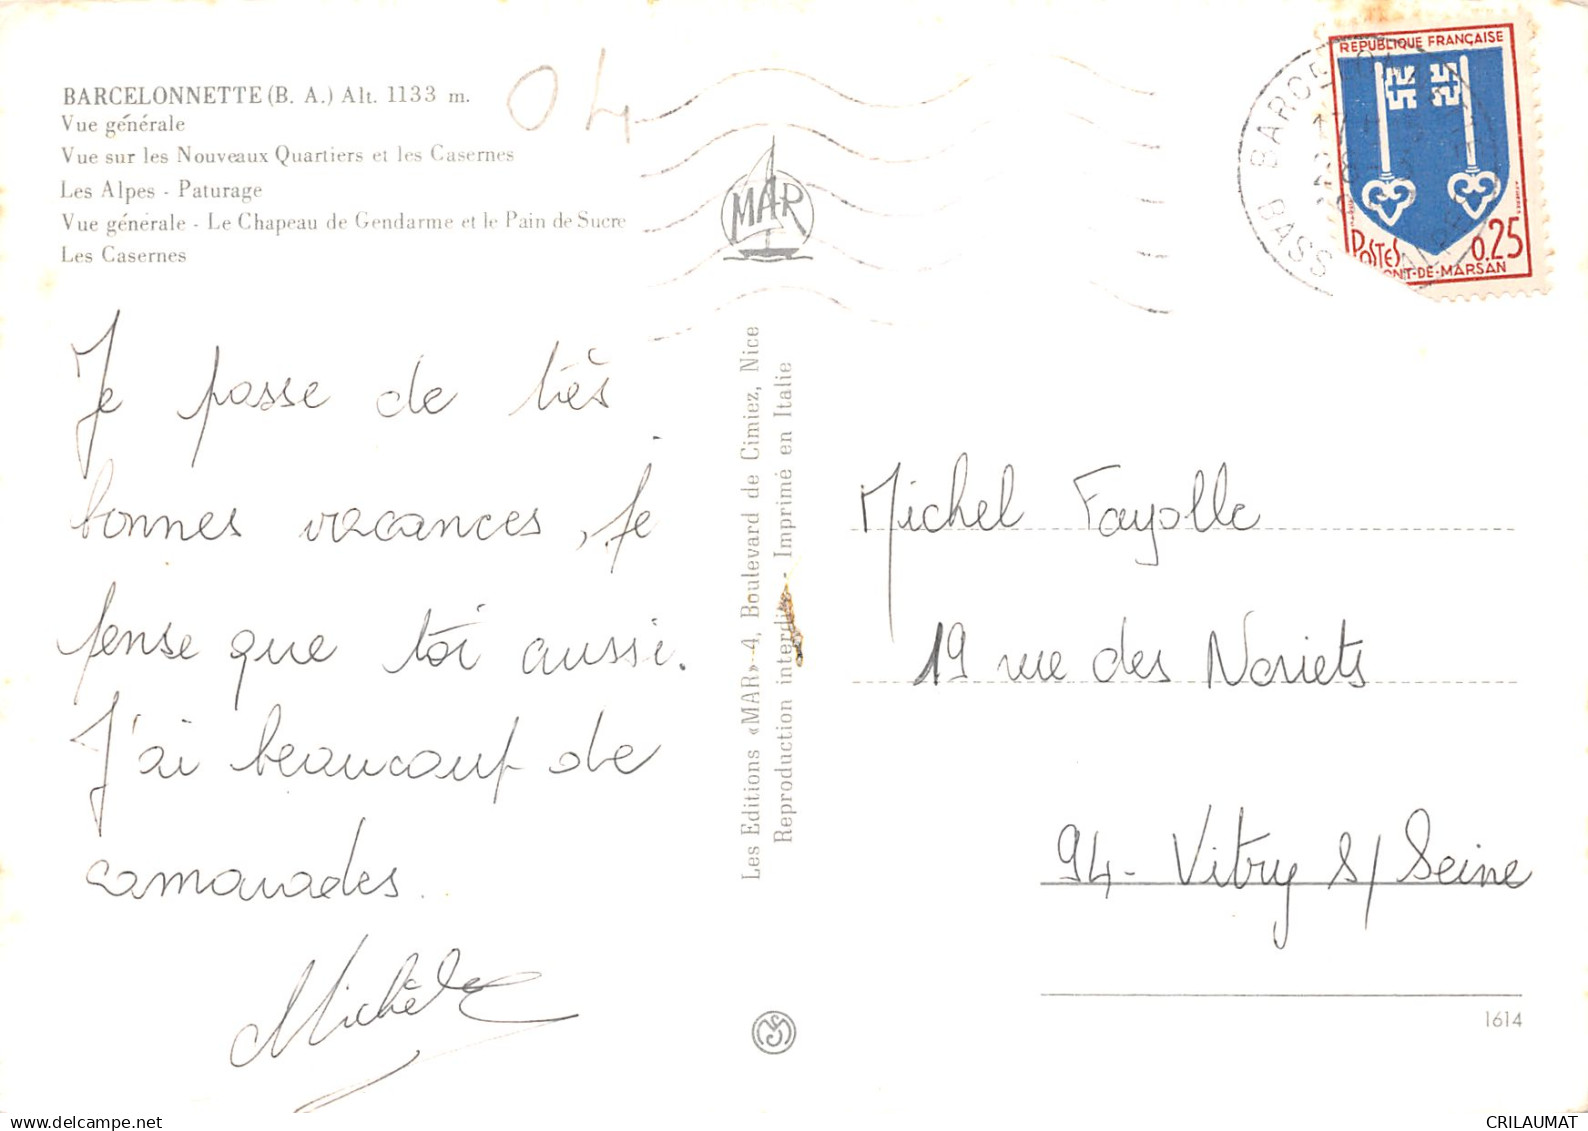 BARCELONNETTE (B. A.) Alt. 1133 m.
Vue générale
Vue sur les Nouveaux Quartiers et les Casernes
Les Alpes - Paturage
Vue générale - Le Chapeau de Gendarme et le Pain de Sucre
Les Casernes
04
MAR
REPUBLIQUE FRANÇAISE
POSTES 0.25
ONT-DE-MARSAN
BARCE
BASS
Je passe de très
bonnes vacances, je
pense que toi aussi.
J'ai beaucoup de
camarades.
Michèle
Les Editions «MAR» 4, Boulevard de Cimiez, Nice
Reproduction interdite - Imprimé en Italie
Michel Fayolle
19 rue des Noriets
94 - Vitry s/ Seine
1614
delcampe.net
CRILAUMAT